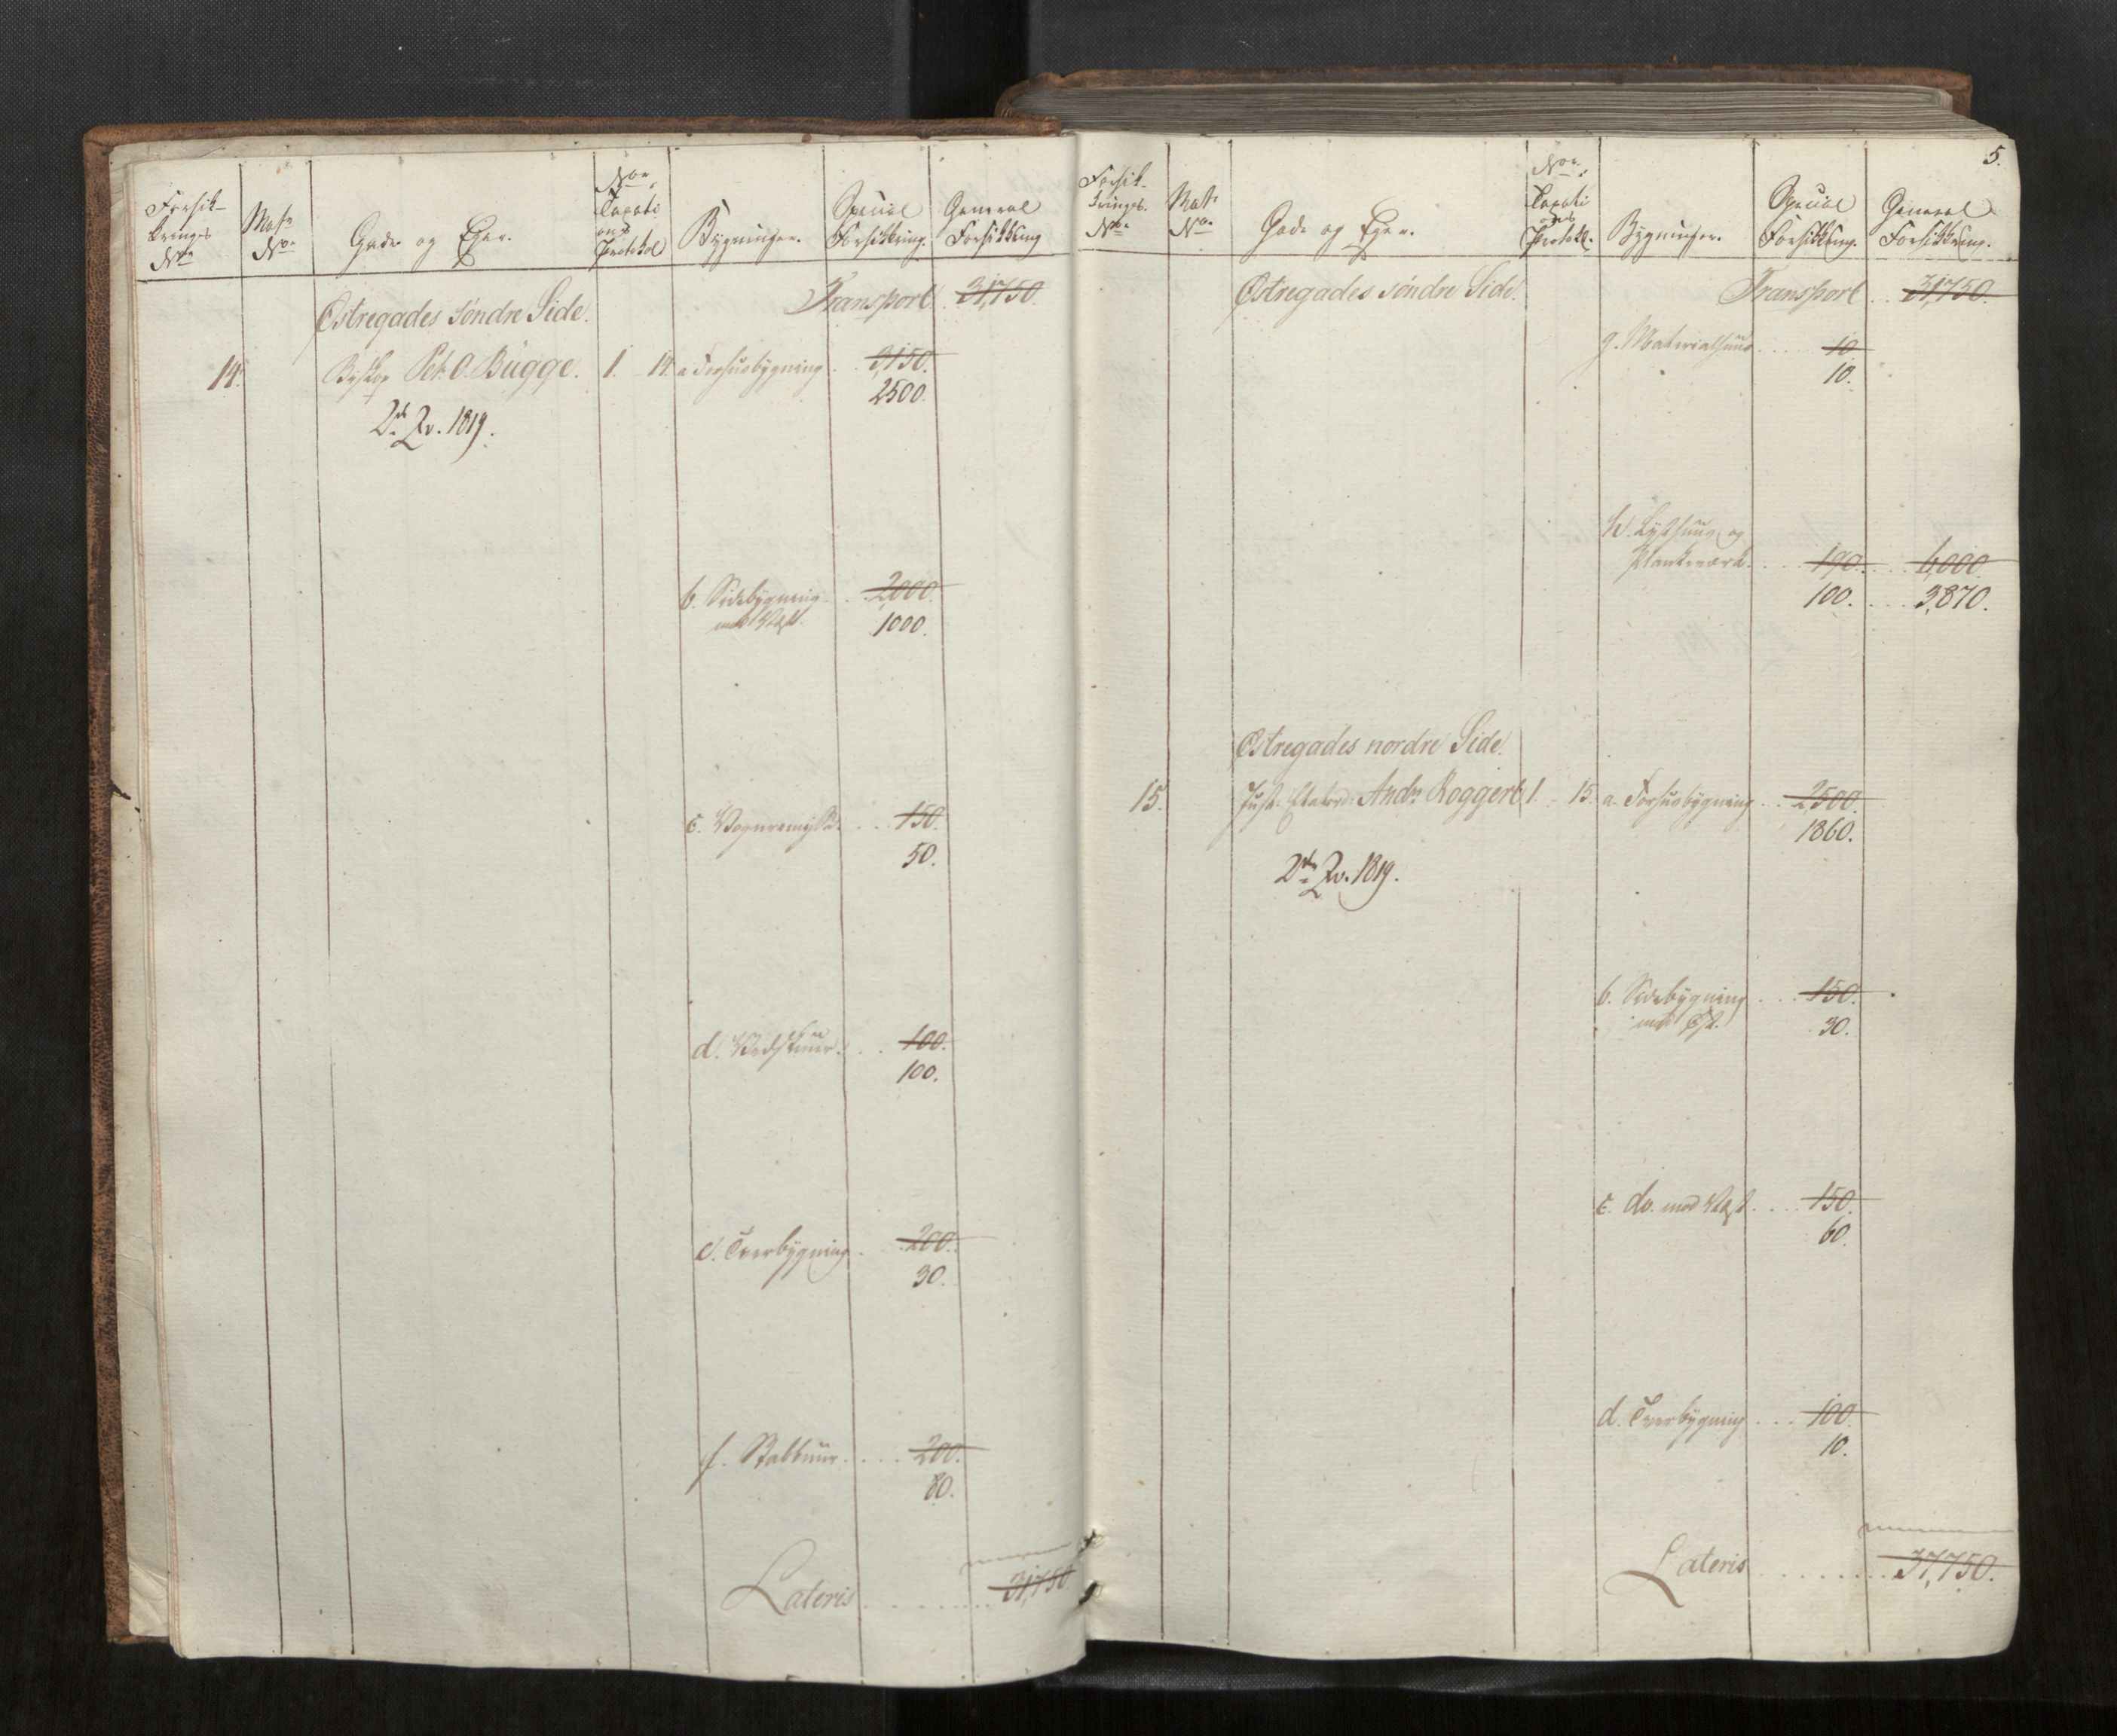 Forsik-
krings
No
Matr
No
Gade og Eyer.
No
Taxati
ons
Protokol
Bygninger.
Special
Forsikkring.
General
Forsikkring
Østregades søndre Side.
Transport. 31,750.
14. Biskop Pet. O. Bugge. 1. 14. a Forhusbygning . . 3,150.
2500.
2d Qv. 1819.
b. Sidebygning . . 2000.
mod Vest. 1000.
c. Vognremisse . . . 150.
50.
d. Vedskuur . . . 100.
100.
e. Tverbygning . . 200.
30.
f. Stabbuur . . . . 200.
80.
Lateris . . . . . . . . 31,750
5.
Forsik-
krings.
No
Matr
No
Gade og Eyer.
No
Taxati
ons
Protokl.
Bygninger.
Special
Forsikkring.
General
Forsikkring.
Østregades søndre Side.
Transport . . 31,750.
g. Materialhuus . . . . 10
10.
h. Lysthuus og
Plankeværk . . . . 190. . . . 6,000
100. . . . 3,870.
Østregades nordre Side.
15. Just. Etatsrd: Andr Roggert 1. 15. a. Forhusbygning . . 2,500.
1860.
2de Qv. 1819.
b. Sidebygning . . . 150.
mod Øst. 30.
c. do. mod Vest . . . . 150.
60.
d. Tverbygning . . . 100.
10.
Lateris . . . . . . . . 37,750.